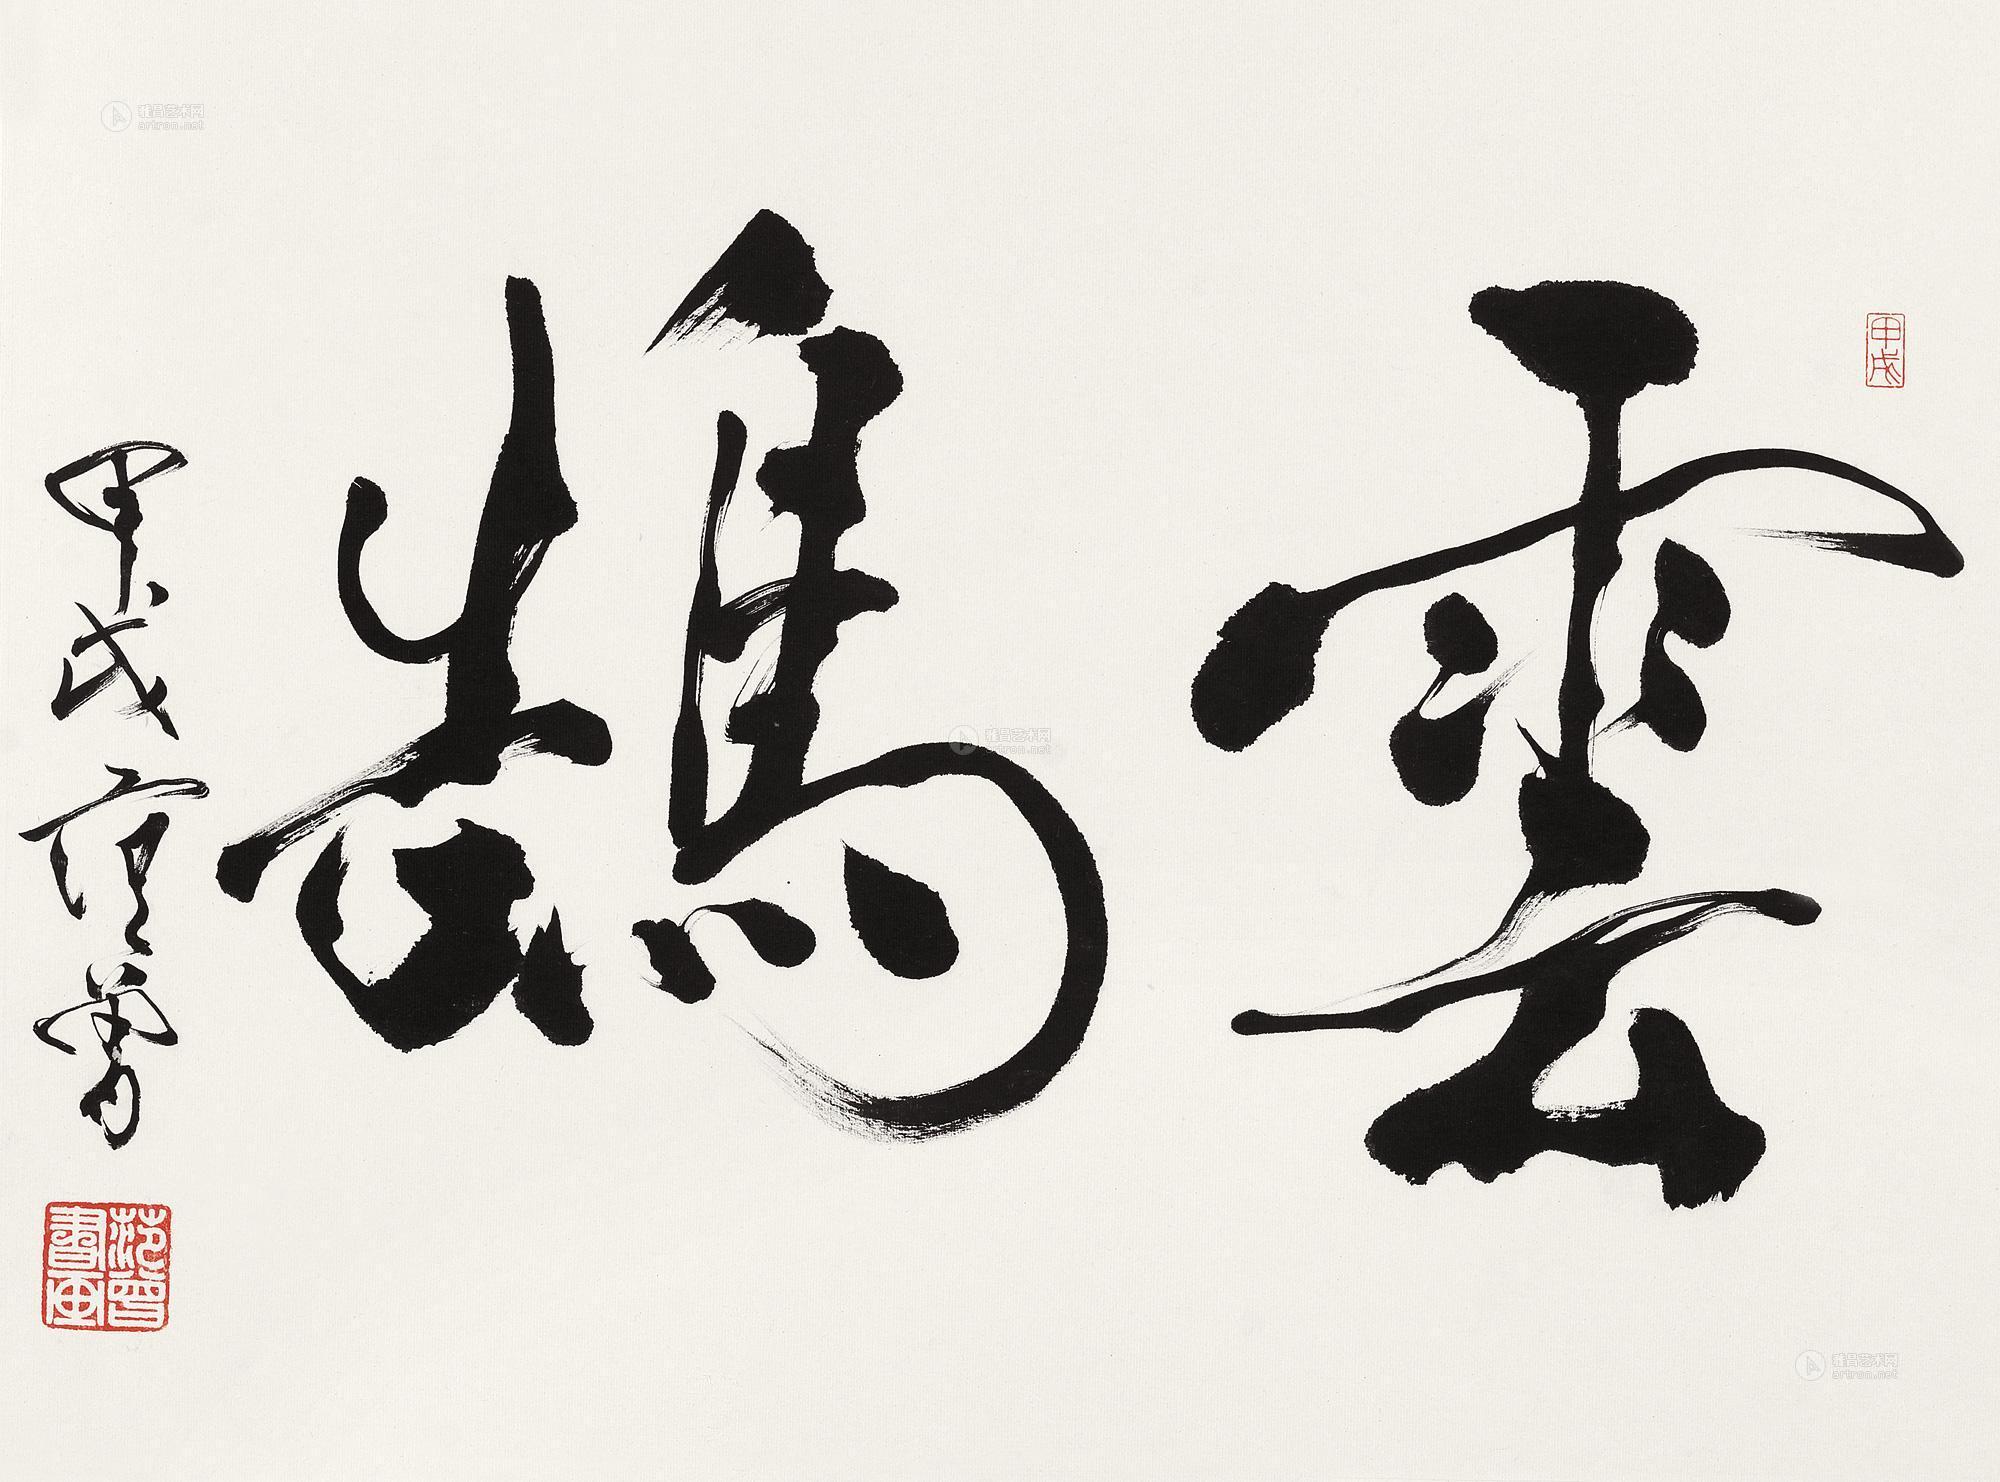 雲鵠
甲戌 范曾
甲戌
范曾書畫
雅昌艺术网
artron.net
雅昌艺术网
artron.net
雅昌艺术网
artron.net